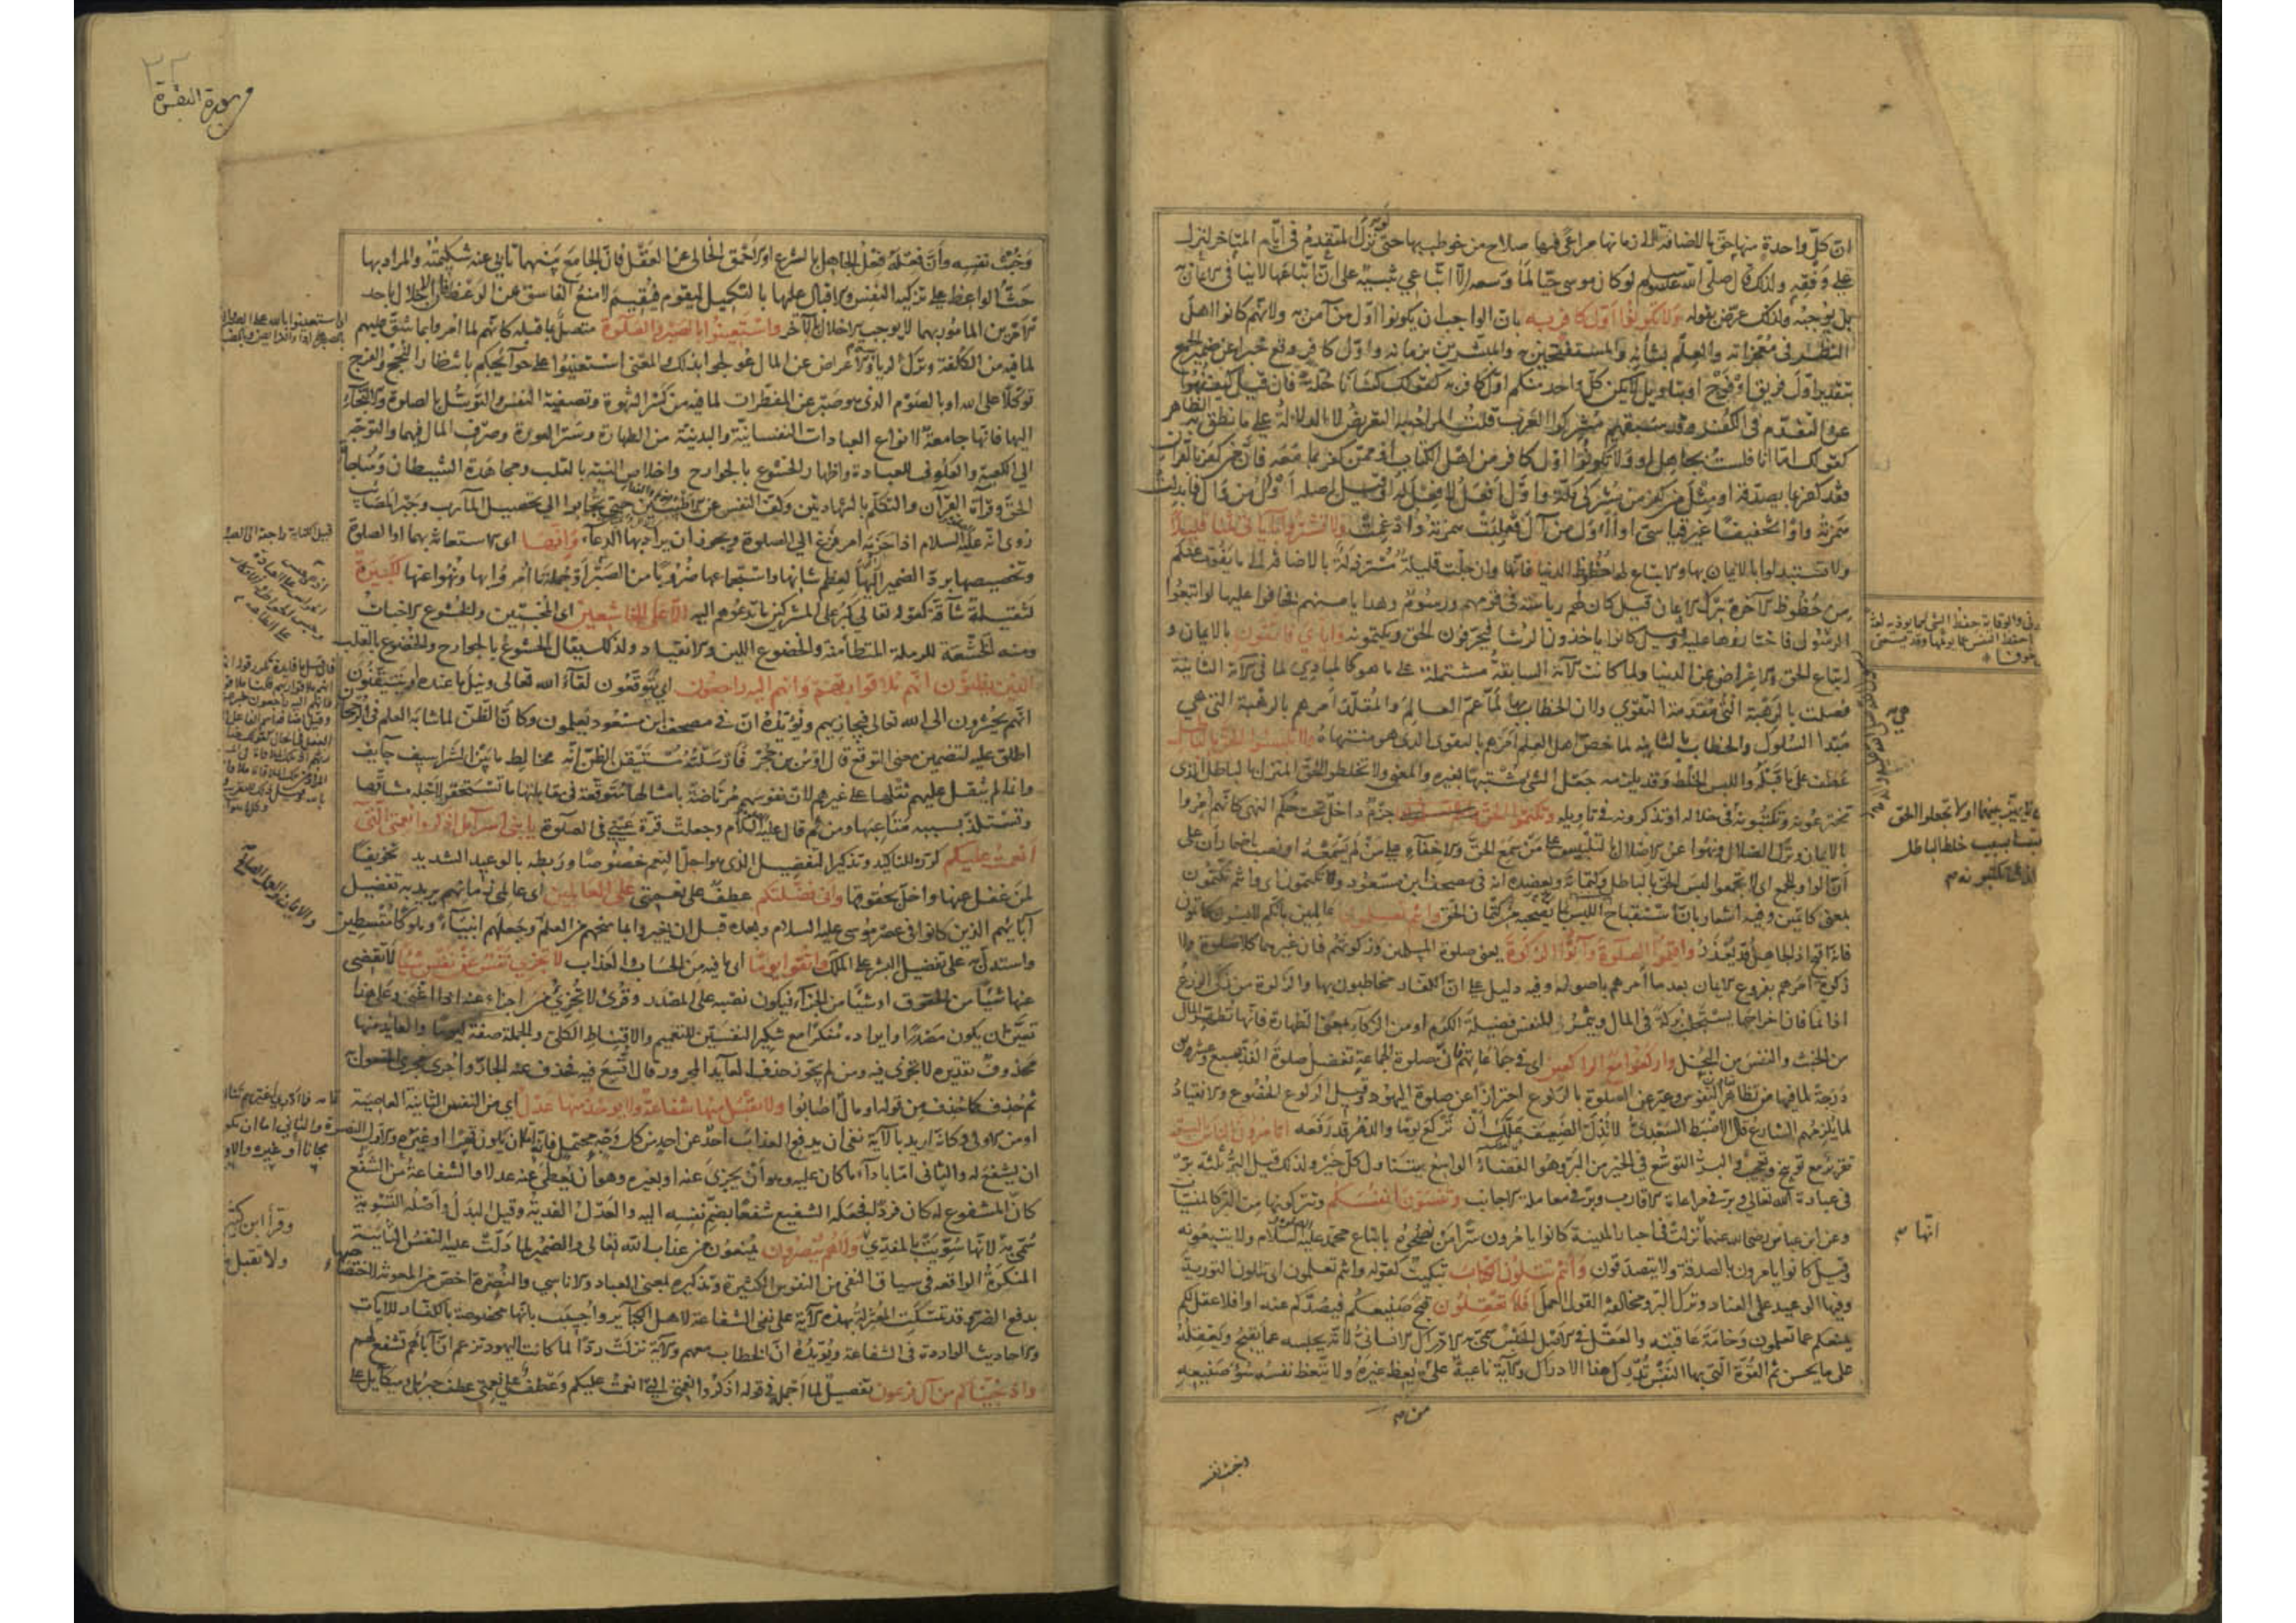 ان كل واحدة منها حق بالاضافة الى زمانها مراعى فيها صلاح من خوطب بها حتى لو نزل المتقدم فى ايام المتاخر لنزل
على وفقه ولذلك قال صلى الله عليه وسلم لو كان موسى حيا لما وسعه الا اتباعي تنبيه على ان اتباعها لا ينافى الايمان به
بل يوجبه ولذلك عرض بقوله ولا تكونوا اول كافر به بان الواجب ان يكونوا اول من آمن به ولانهم كانوا اهل
النظر فى معجزاته والعلم بشانه والمستفتحين به والمبشرين بزمانه واول كافر وقع خبرا عن ضمير الجمع
بتقدير اول فريق او فوج او بتاويل لا يكن كل واحد منكم اول كافر به كقولك كسانا حلة فان قيل كيف نهوا
عن التقدم فى الكفر وقد سبقهم مشركوا العرب قلت المراد به التعريض لا الدلالة على ما نطق به الظاهر
كقولك اما انا فلست بجاهل او ولا تكونوا اول كافر من اهل الكتاب او ممن كفر بما معه فان من كفر بالقرآن
فقد كفر بما يصدقه او مثل من كفر من مشركى مكة واول افعل لا فعل له وقيل اصله اوأل من وأل فابدلت
همزته واوا تخفيفا غير قياسى او أأول من آل فقلبت همزته واوا وادغمت ولا تشتروا باياتى ثمنا قليلا
ولا تستبدلوا بالايمان بها والاتباع لها حظوظ الدنيا فانها وان جلت قليلة مسترذلة بالاضافة الى ما يفوت عنكم
من حظوظ الآخرة بترك الايمان قيل كان لهم رياسة فى قومهم ورسوم وهدايا منهم فخافوا عليها لو اتبعوا
الرسول فاختاروها عليه وقيل كانوا ياخذون الرشا فيحرفون الحق ويكتمونه واياي فاتقون بالايمان و
اتباع الحق والاعراض عن الدنيا ولما كانت الآية السابقة مشتملة على ما هو كالمبادي لما فى الآية الثانية
فصلت بالرهبة التى هي مقدمة التقوي ولان الخطاب بها لما عم العالم والمقلد امرهم بالرهبة التى هي
مبدا السلوك والخطاب بالثانية لما خص اهل العلم امرهم بالتقوى الذى هو منتهاه ولا تلبسوا الحق بالباطل
عطف على ما قبله واللبس الخلط وقد يلزمه جعل الشئ مشتبها بغيره والمعنى ولا تخلطوا الحق المنزل بالباطل الذى
تخترعونه وتكتبونه فى خلاله او تذكرونه فى تاويله وتكتموا الحق جزم داخل تحت حكم النهى كانهم امروا
بالايمان وترك الضلال ونهوا عن الاضلال بالتلبيس على من سمع الحق والاخفاء على من لم يسمعه او نصب باضمار ان على
ان الواو للجمع اى لا تجمعوا لبس الحق بالباطل وكتمانه ويعضده انه فى مصحف ابن مسعود ولا تكتمون اى وانتم تكتمون
بمعنى كاتمين وفيه اشعار بان استقباح اللبس لما يصحبه من كتمان الحق وانتم تعلمون عالمين بانكم لابسون كاتمون
فانه اقبح اذ الجاهل قد يعذر واقيموا الصلوة وآتوا الزكوة يعنى صلوة المسلمين وزكوتهم فان غيرهما كلا صلوة ولا
زكوة امرهم بفروع الايمان بعد ما امرهم باصوله وفيه دليل على ان الكفار مخاطبون بها والزكوة من زكى الزرع
اذا نما فان اخراجها يستجلب بركة فى المال ويثمر للنفس فضيلة الكرم او من الزكاء بمعنى الطهارة فانها تطهر المال
من الخبث والنفس من البخل واركعوا مع الراكعين اى فى جماعاتهم فان صلوة الجماعة تفضل صلوة الفذ بسبع وعشرين
درجة لما فيها من تظاهر النفوس وعبر عن الصلوة بالركوع احترازا عن صلوة اليهود وقيل الركوع الخضوع والانقياد
لما يلزمهم الشارع قال الاضبط السعدى لا تذل الضعيف علك ان تركع يوما والدهر قد رفعه اتامرون الناس بالبر
تقرير مع توبيخ وتعجيب والبر التوسع فى الخير من البر وهو الفضاء الواسع يتناول كل خير ولذلك قيل البر ثلثة بر
فى عبادة الله تعالى وبر فى مراعاة الاقارب وبر فى معاملة الاجانب وتنسون انفسكم وتتركونها من البر كالمنسيات
وعن ابن عباس رضى الله عنهما نزلت فى احبار المدينة كانوا يامرون سرا من نصحوه باتباع محمد عليه السلام ولا يتبعونه
وقيل كانوا يامرون بالصدقة ولا يتصدقون وانتم تتلون الكتاب تبكيت كقوله وانتم تعلمون اى تتلون التورية
وفيها الوعيد على العناد وترك البر ومخالفة القول العمل افلا تعقلون قبح صنيعكم فيصدكم عنه او افلا عقل لكم
يمنعكم عما تعلمون وخامة عاقبته والعقل فى الاصل الحبس سمى به الادراك الانسانى لانه يحبسه عما يقبح ويعقله
على ما يحسن ثم القوة التى بها النفس تدرك هذا الادراك والآية ناعية على من يعظ غيره ولا يتعظ نفسه سوء صنيعه
وخبث نفسه
انها
سورة البقرة
وخبث نفسه وان فعله فعل الجاهل بالشرع او الاحمق الخالى عن العقل فان الجامع بينهما تابى عنه شكيمته والمراد بها
حث الواعظ على تزكية النفس والاقبال عليها بالتكميل ليقوم فيقيم لا منع الفاسق عن الوعظ فان الاخلال باحد
الامرين المامور بهما لا يوجب الاخلال بالآخر واستعينوا بالصبر والصلوة متصل بما قبله كانهم لما امروا بما شق عليهم
لما فيه من الكلفة وترك الرياسة والاعراض عن المال عولجوا بذلك والمعنى استعينوا على حوائجكم بانتظار النجح والفرج
توكلا على الله او بالصوم الذى هو صبر عن المفطرات لما فيه من كسر الشهوة وتصفية النفس والتوسل بالصلوة والالتجاء
اليها فانها جامعة لانواع العبادات النفسانية والبدنية من الطهارة وستر العورة وصرف المال فيهما والتوجه
الى الكعبة والعكوف للعبادة واظهار الخشوع بالجوارح واخلاص النية بالقلب ومجاهدة الشيطان ومناجاة
الحق وقراءة القرآن والتكلم بالشهادتين وكف النفس عن الاطيبين حتى تجابوا الى تحصيل المآرب وجبر المصائب
روى انه عليه السلام اذا حزبه امر فزع الى الصلوة ويجوز ان يراد بها الدعاء وانها اى الاستعانة بهما او الصلوة
وتخصيصها برد الضمير اليها لعظم شانها واستجماعها ضروبا من الصبر او جملة ما امروا بها ونهوا عنها لكبيرة
لثقيلة شاقة كقوله تعالى كبر على المشركين ما تدعوهم اليه الا على الخاشعين اى المخبتين والخشوع الاخبات
ومنه الخشعة للرملة المتطامنة والخضوع اللين والانقياد ولذلك يقال الخشوع بالجوارح والخضوع بالقلب
الذين يظنون انهم ملاقوا ربهم وانهم اليه راجعون اى يتوقعون لقاء الله تعالى ونيل ما عنده او يتيقنون
انهم يحشرون الى الله تعالى فيجازيهم ويؤيده ان فى مصحف ابن مسعود يعلمون وكان الظن لما شابه العلم فى الرجحان
اطلق عليه لتضمين معنى التوقع قال اوس بن حجر فارسلته مستيقن الظن انه مخالط ما بين الشراسيف جايف
وانما لم يثقل عليهم ثقلها على غيرهم لان نفوسهم مرتاضة بامثالها متوقعة فى مقابلتها ما تستحقر لاجله مشاقها
وتستلذ بسببه متاعبها ومن ثم قال عليه السلام وجعلت قرة عينى فى الصلوة يا بنى اسرآئل اذكروا نعمتى التى
انعمت عليكم كرره للتاكيد وتذكير التفضيل الذى هو اجل النعم خصوصا وربطه بالوعيد الشديد تخويفا
لمن غفل عنها واخل بحقوقها وانى فضلتكم عطف على نعمتى على العالمين اى عالمى زمانهم يريد به تفضيل
آبائهم الذين كانوا فى عصر موسى عليه السلام وبعده قبل ان يغيروا بما منحهم من العلم وجعلهم انبياء وملوكا مقسطين
واستدل به على تفضيل البشر على الملك واتقوا يوما اى ما فيه من الحساب والعذاب لا تجزى نفس عن نفس شيئا لا تقضى
عنها شيئا من الحقوق او شيئا من الجزاء فيكون نصبه على المصدر وقرئ لا تجزئ من اجزأ عنه اذا اغنى وعلى هذا
تعين ان يكون مصدرا وايراده منكرا مع تنكير النفسين للتعميم والاقناط الكلى والجملة صفة ليوما والعائد منها
محذوف تقديره لا تجزى فيه ومن لم يجوز حذف العايد المجرور قال اتسع فيه فحذف عنه الجار واجرى مجرى المفعول به
ثم حذف كما حذف من قوله او مال اصابوا ولا تقبل منها شفاعة ولا يوخذ منها عدل اى من النفس الثانية العاصية
او من الاولى وكانه اريد بالآية نفى ان يدفع العذاب احد عن احد من كل وجه محتمل فانه اما ان يكون قهرا او غيره والاول النصرة والثانى اما ان يكون
ان يشفع له والثانى اما باداء ما كان عليه وهو ان يجزى عنه او بغيره وهو ان يعطى عنه عدلا والشفاعة من الشفع
كان المشفوع له كان فردا فجعله الشفيع شفعا بضم نفسه اليه والعدل الفدية وقيل البدل واصله التسوية
سمى به لانها سويت بالمفدى ولا هم ينصرون يمنعون من عذاب الله تعالى والضمير لما دلت عليه النفس الثانية
المنكرة الواقعة فى سياق النفى من النفوس الكثيرة وتذكيره بمعنى العباد والاناسي والنصرة اخص من المعونة لاختصاصها
بدفع الضر وقد تمسكت المعتزلة بهذه الآية على نفى الشفاعة لاهل الكبآئر واجيب بانها مخصوصة بالكفار للآيات
والاحاديث الواردة فى الشفاعة ويؤيده ان الخطاب معهم والآية نزلت ردا لما كانت اليهود تزعم ان آباءهم تشفع لهم
واذ نجيناكم من آل فرعون تفصيل لما اجمله فى قوله اذكروا نعمتى التى انعمت عليكم وعطف على نعمتى عطف جبريل وميكائيل على
والايمان والعمل الصالح
وقرأ ابن كثير
ولا تقبل